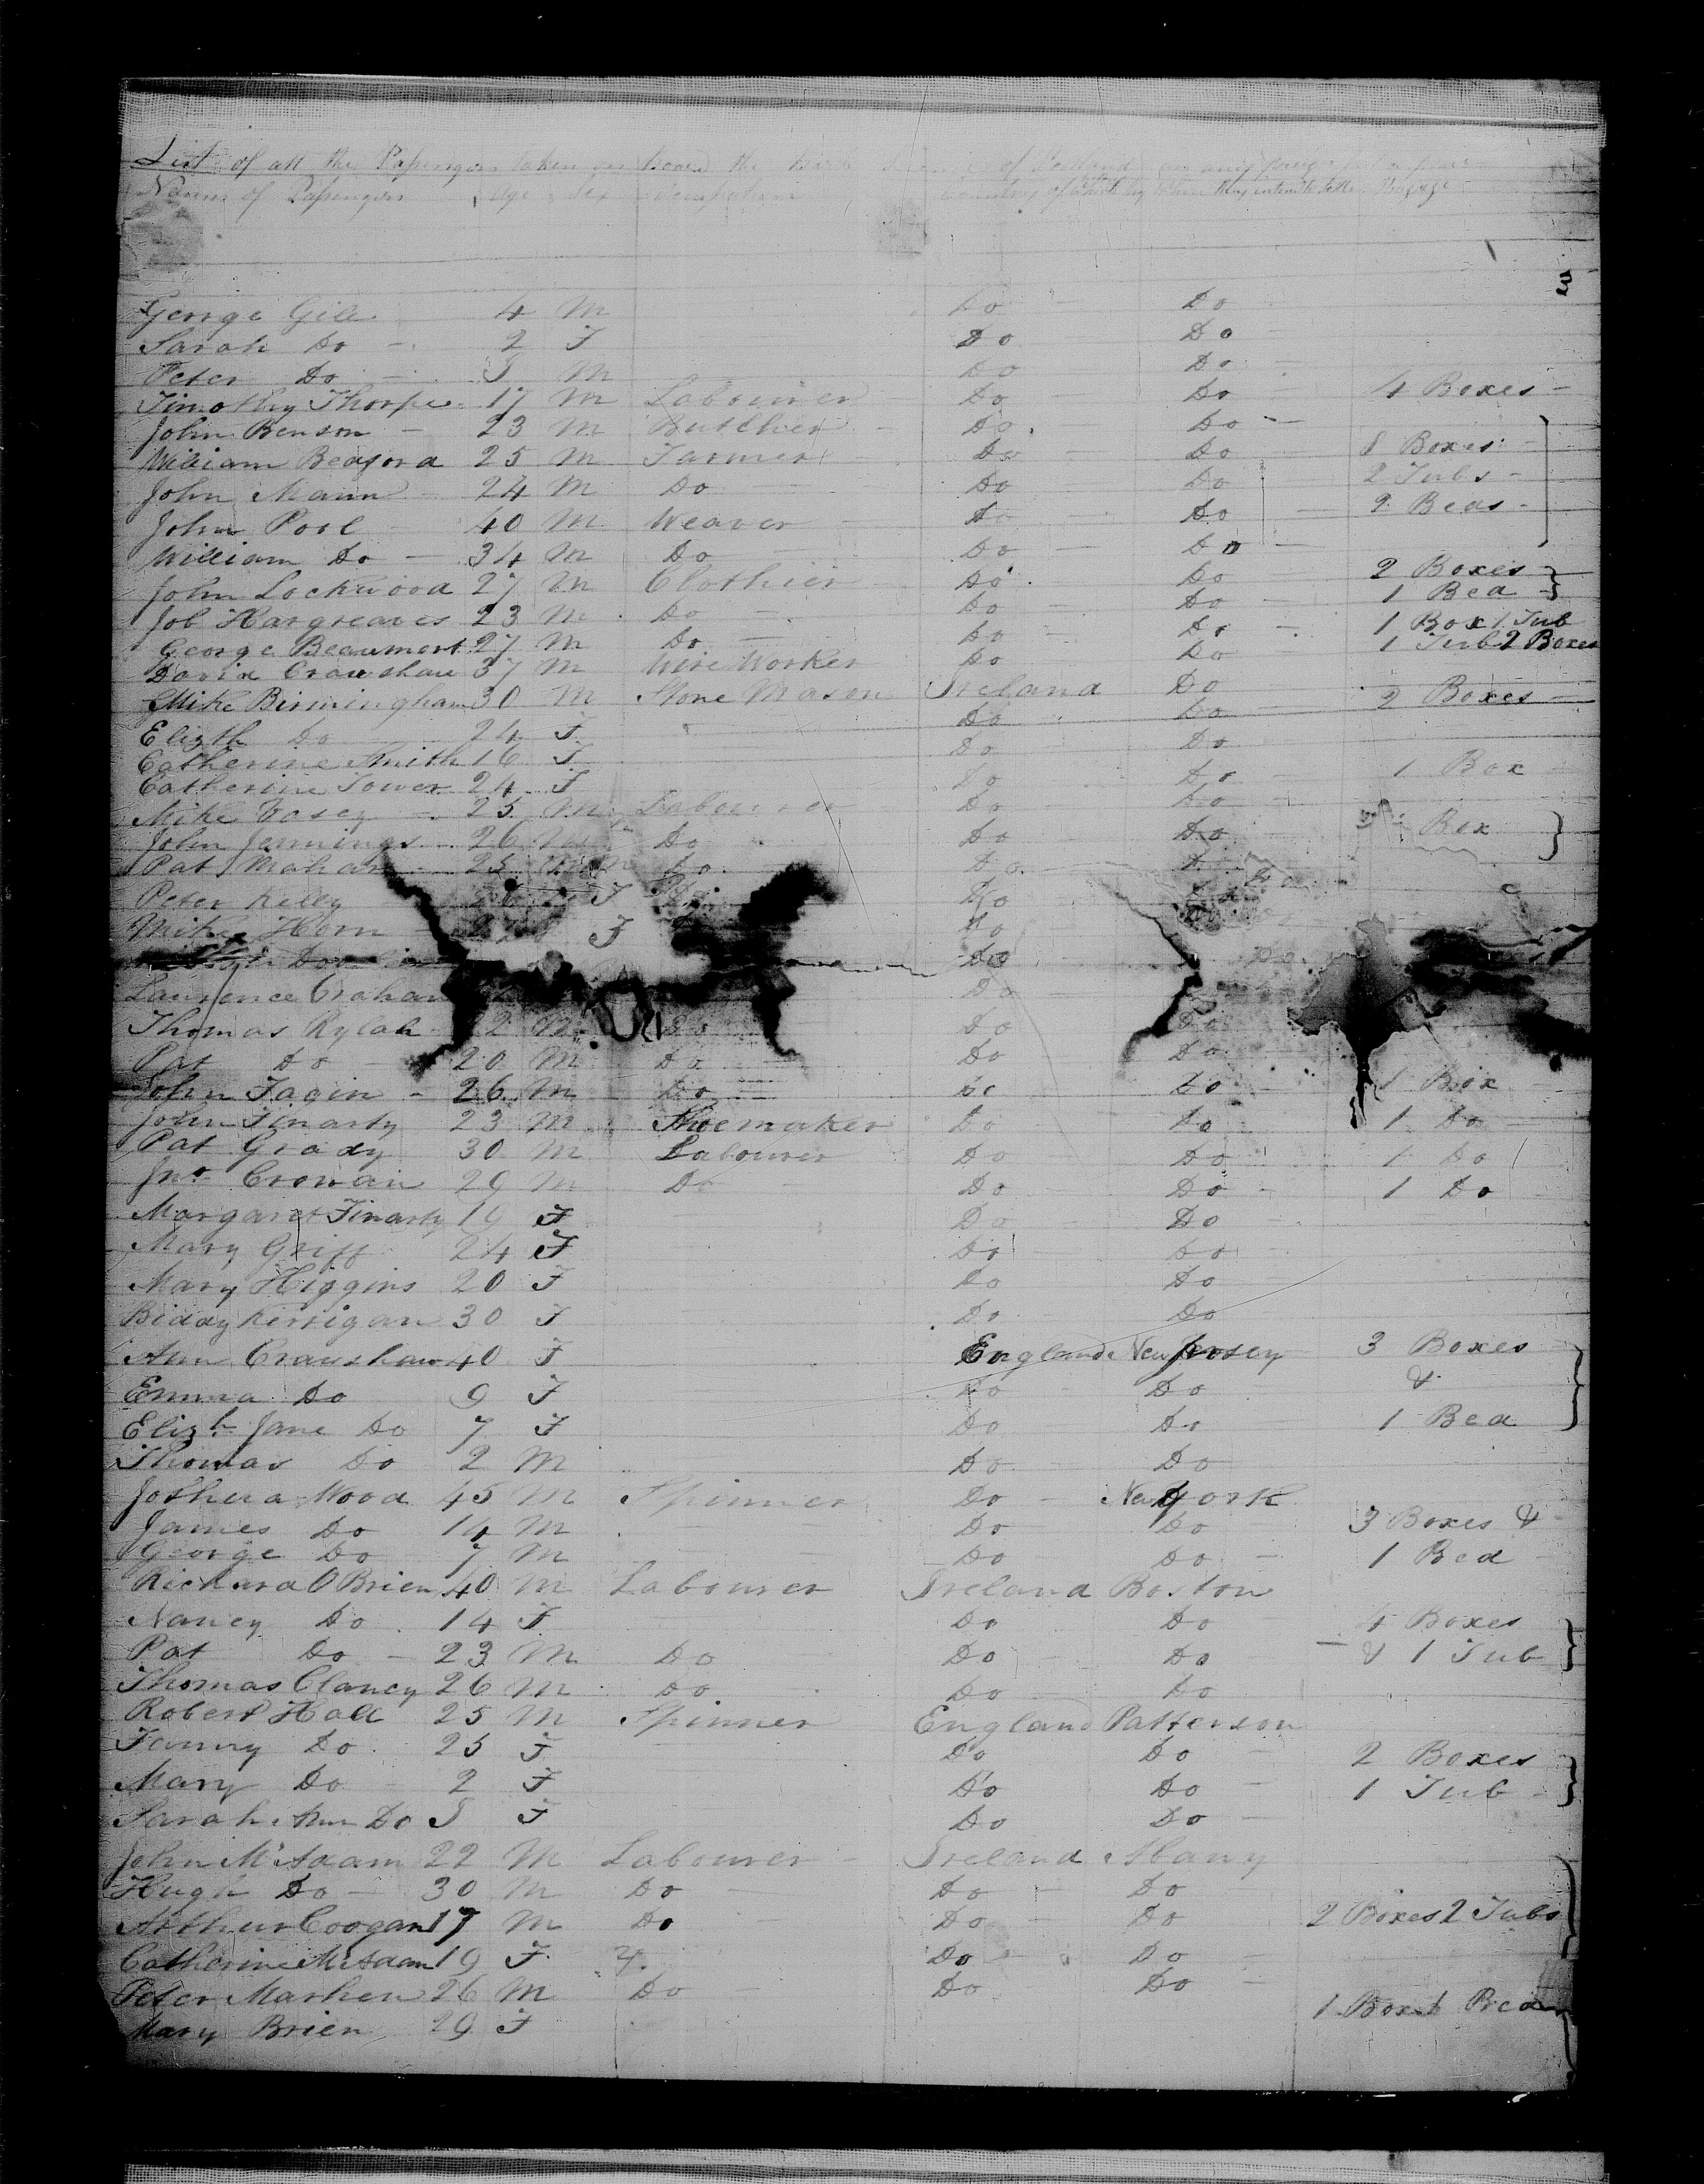 List of all the Passengers taken on board the of Portland any foreign port or place
Names of Passengers Age Sex Occupation Country of which they intend to settle Baggage
3
George Gill 4 M Do Do
Sarah Do 2 F Do Do
Peter Do M Do Do
Timothy Thorpe 17 M Labourer Do Do 4 Boxes
John Benson 23 M Butcher Do Do
William Bedford 25 M Farmer Do Do 8 Boxes
John Mann 24 M Do Do Do 2 Tubs
John Pool 40 M Weaver Do Do 2 Beds
William Do 34 M Do Do Do
John Lockwood 27 M Clothier Do Do 2 Boxes
Job Hargreaves 23 M Do Do Do 1 Bed
George Beaumont 27 M Do Do Do 1 Box 1 Tub
David Crawshaw 37 M Wire Worker Do Do 1 Tub 2 Boxes
Mike Birmingham 30 M Stone Mason Ireland Do 2 Boxes
Elizth Do 24 F Do Do
Catherine Smith 16 F Do Do
Catherine Tower 24 F Do Do 1 Box
Mike Casey 25 M Labourer Do Do
John Jennings 26 M Do Do Do Box
Pat Mahan 25 M Do Do Do
Peter Kelly F Do Do
Mike Horn F Do
Do Do
Laurence Do
Thomas Rylah 22 M Do Do Do
Pat Do 20 M Do Do Do
John Fagin 26 M Do Do Do 1 Box
John Finarty 23 M Shoemaker Do Do 1 Do
Pat Grady 30 M Labourer Do Do 1 Do
Jno Crowan 29 M Do Do Do 1 Do
Margaret Finarty 19 F Do Do
Mary Griff 24 F Do Do
Mary Higgins 20 F Do Do
Biddy Kerrigan 30 F Do Do
Ann Crawshaw 40 F England New Jersey 3 Boxes
Emma Do 9 F Do Do &
Elizh Jane Do 7 F Do Do 1 Bed
Thomas Do 2 M Do Do
Joshua Wood 45 M Spinner Do New York
James Do 14 M Do Do 3 Boxes &
George Do 7 M Do Do 1 Bed
Richard OBrien 40 M Labourer Ireland Boston
Nancy Do 14 F Do Do 4 Boxes
Pat Do 23 M Do Do Do & 1 Tub
Thomas Clancy 26 M Do Do Do
Robert Hall 25 M Spinner England Patterson
Fanny Do 25 F Do Do 2 Boxes
Mary Do 2 F Do Do 1 Tub
Sarah Ann Do F Do Do
John McAdam 22 M Labourer Ireland Albany
Hugh Do 30 M Do Do Do
Arthur Coogan 17 M Do Do Do 2 Boxes 2 Tubs
Catherine McAdam 19 F Do Do
Peter Marhen 26 M Do Do Do
Mary Brien 29 F 1 Box 1 Bed